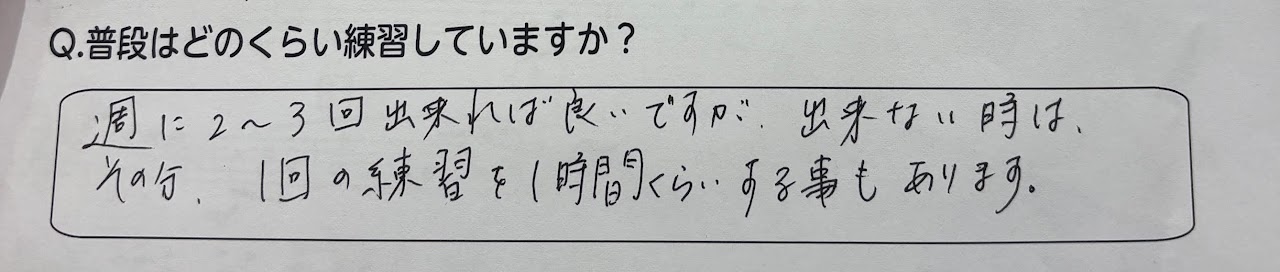 Q.普段はどのくらい練習していますか？
週に2〜3回出来れば良いですが、出来ない時は、
その分、1回の練習を1時間くらいする事もあります。